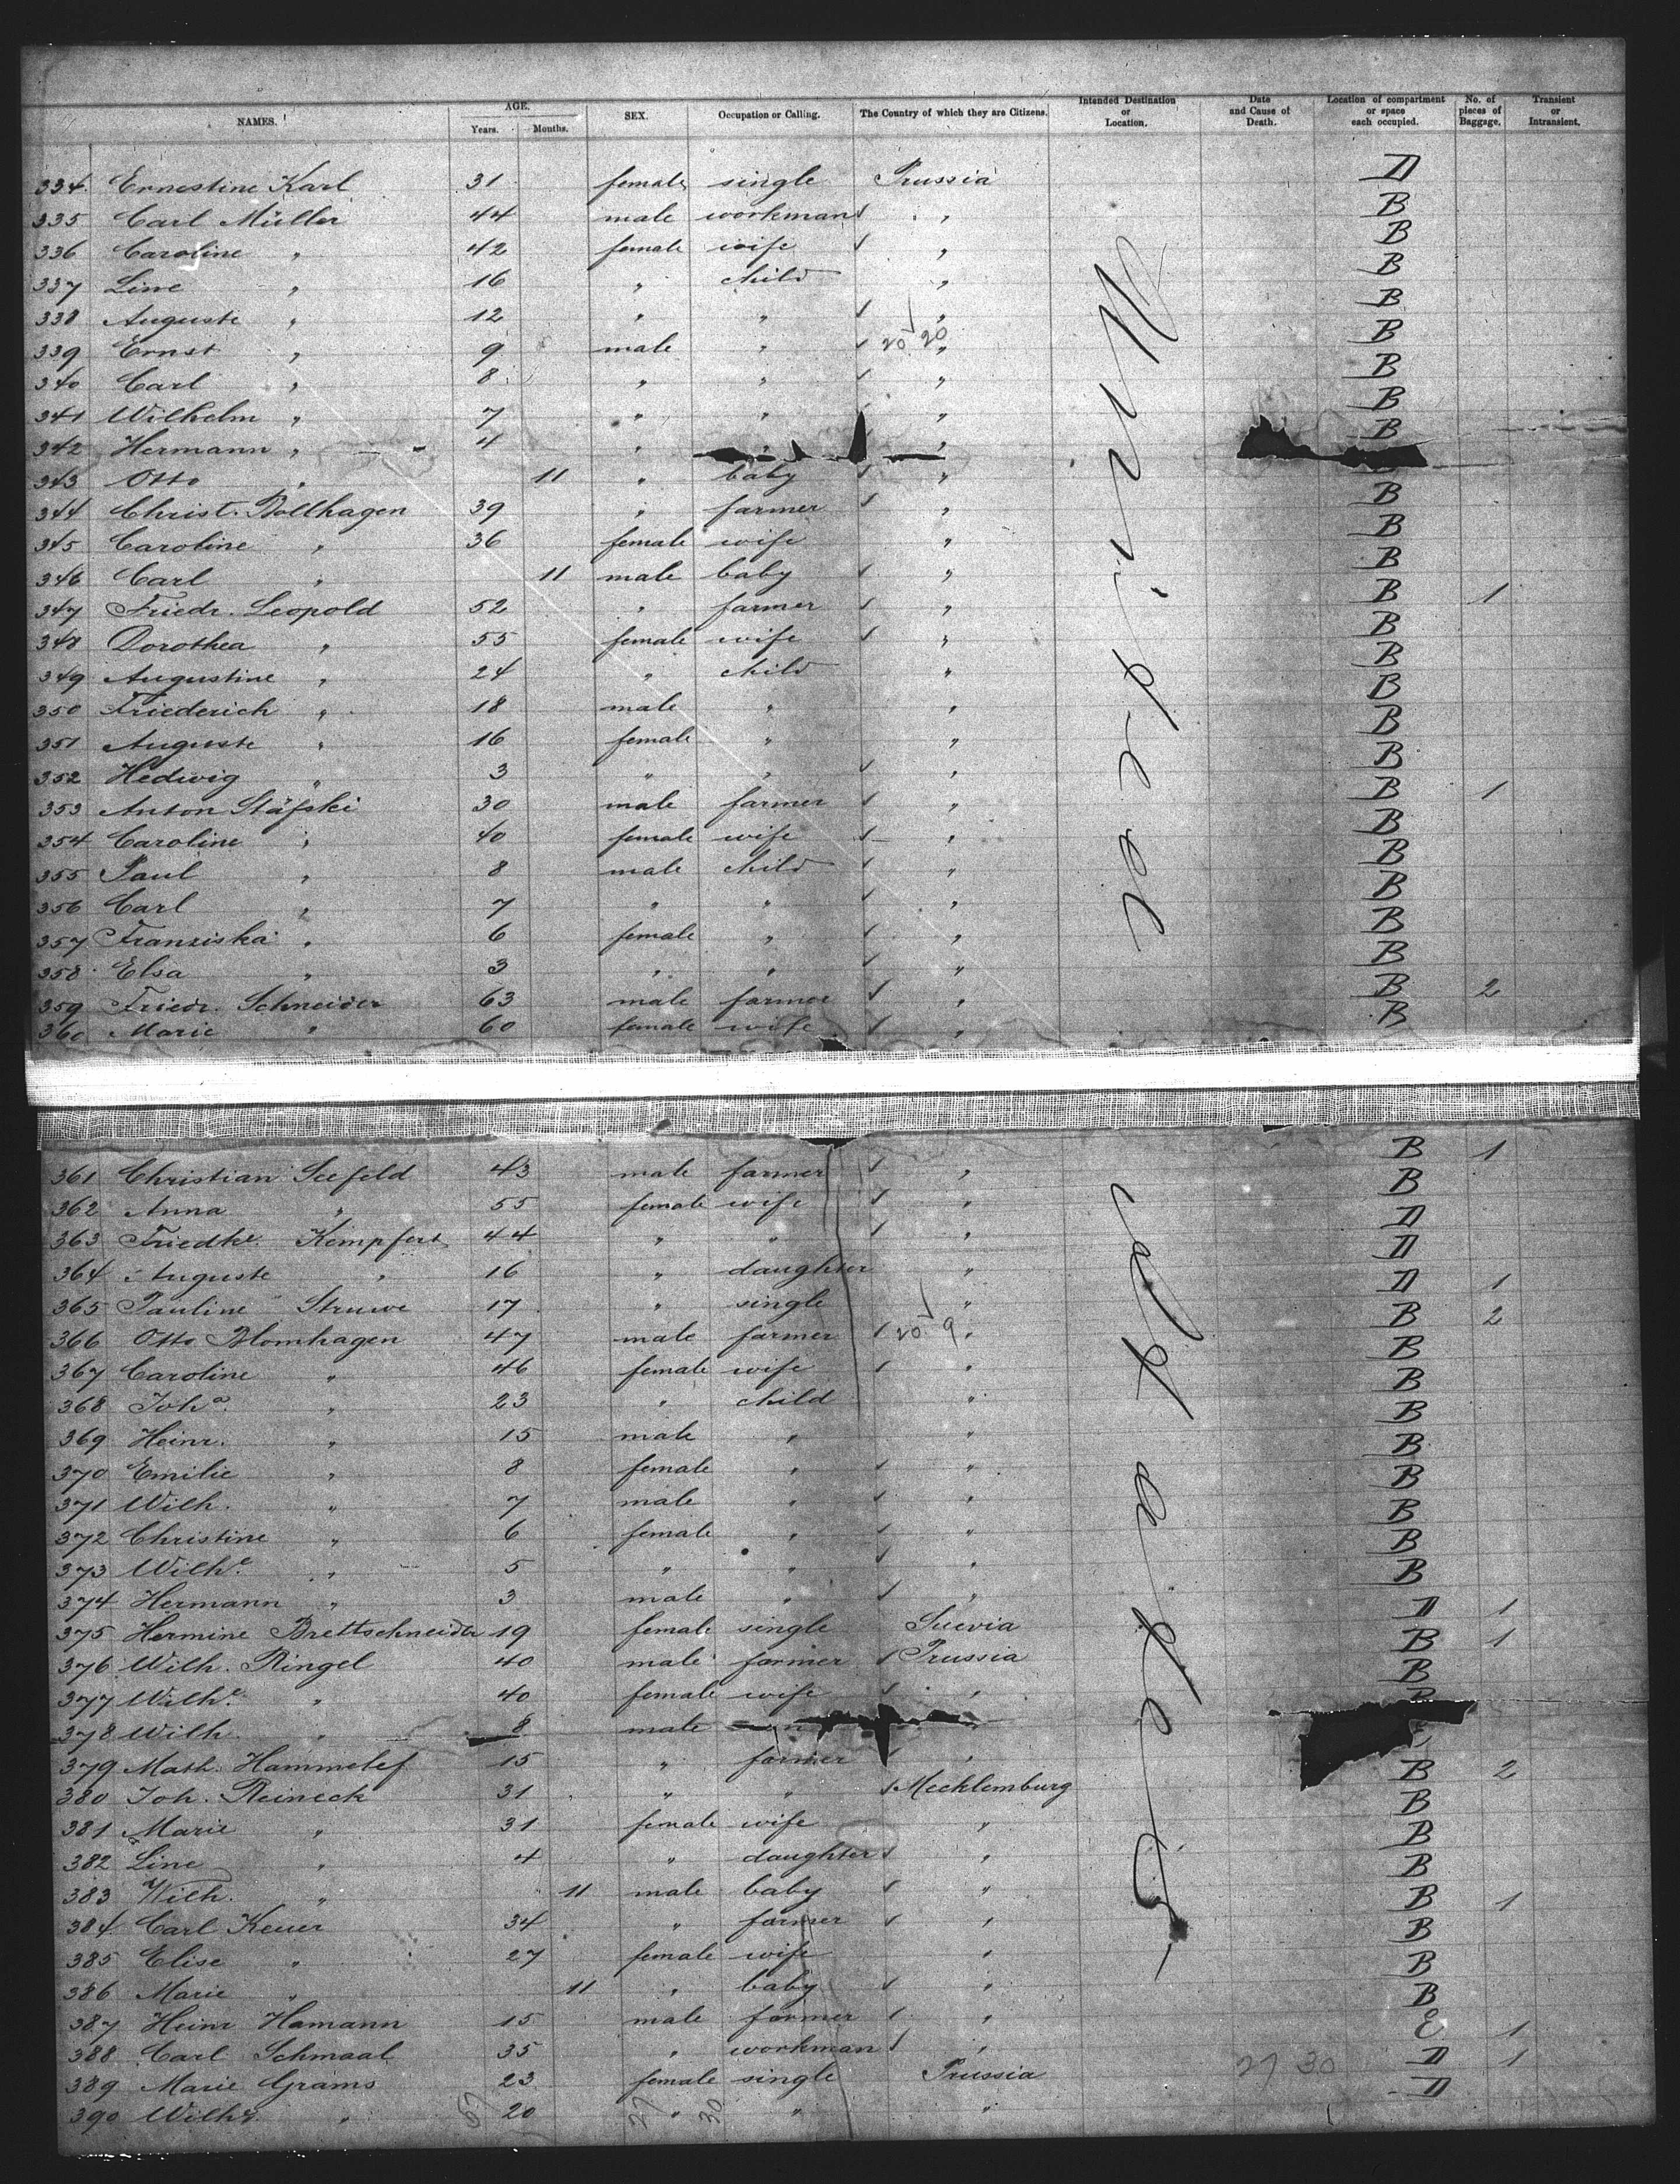 NAMES. AGE. Years. Months. SEX. Occupation or Calling. The Country of which they are Citizens. Intended Destination or Location. Date and Cause of Death. Location of compartment or space each occupied. No. of pieces of Baggage. Transient or Intransient.
334. Ernestine Karl 31 female single Prussia D
335 Carl Müller 44 male workman " B
336 Caroline " 42 female wife " B
337 Line " 16 " child " B
338 Auguste " 12 " " " B
339 Ernst " 9 male " 20 20 " B
340 Carl " 8 " " " B
341 Wilhelm " 7 " " " B
342 Hermann " 4 " " " B
343 Otto " 11 " baby "
344 Christ. Bollhagen 39 " farmer " B
345 Caroline " 36 female wife " B
346 Carl " 11 male baby " B
347 Friedr. Leopold 52 " farmer " B 1
348 Dorothea " 55 female wife " B
349 Augustine " 24 " child " B
350 Friederich " 18 male " " B
351 Auguste " 16 female " " B
352 Hedwig " 3 " " " B
353 Anton Stäfski 30 male farmer " B 1
354 Caroline " 40 female wife " B
355 Paul " 8 male child " B
356 Carl " 7 " " " B
357 Franziska " 6 female " " B
358 Elsa " 3 " " " B
359 Friedr. Schneider 63 male farmer " B 2
360 Marie " 60 female wife " B
361 Christian Seefeld 43 male farmer " B 1
362 Anna " 55 female wife " B
363 Friedke. Kempfert 44 " " " D
364 Auguste " 16 " daughter " D
365 Pauline Struwe 17 " single " D 1
366 Otto Blomhagen 47 male farmer 20 9 " B 2
367 Caroline " 46 female wife " B
368 Joha. " 23 " child " B
369 Heinr. " 15 male " " B
370 Emilie " 8 female " " B
371 Wilh. " 7 male " " B
372 Christine " 6 female " " B
373 Wilhe. " 5 " " " B
374 Hermann " 3 male " " B
375 Hermine Brettschneider 19 female single Suevia D 1
376 Wilh. Ringel 40 male farmer Prussia B 1
377 Wilhe. " 40 female wife " B
378 Wilh. " 8 male " B
379 Math. Hammelef 15 " farmer "
380 Joh. Reineck 31 " " Mecklemburg B 2
381 Marie " 31 female wife " B
382 Line " 4 " daughter " B
383 Wilh. " 11 male baby " B
384. Carl Keuer 34 " farmer " B 1
385 Elise " 27 female wife " B
386 Marie " 11 " baby " B
387 Heinr Hamann 15 male farmer " B
388 Carl Schmaal 35 " workman " E 1
389 Marie Grams 23 female single Prussia 27 30 D 1
390 Wilhe. " 20 " " " D
57 27 30